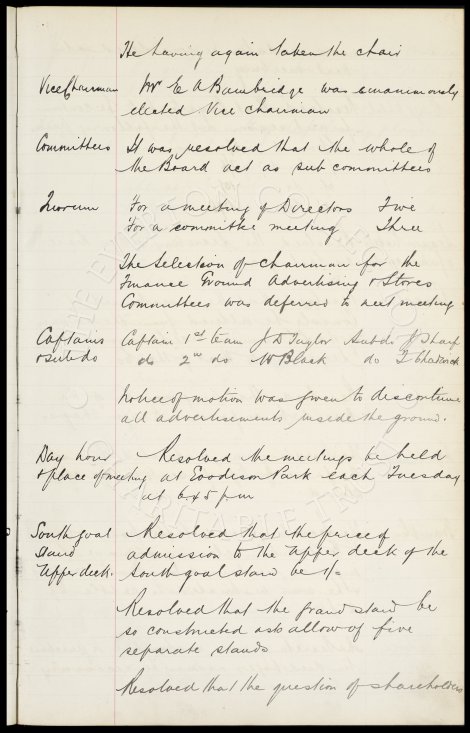 He having again taken the chair
Vice Chairman Mr E A Bainbridge was unanimously
elected Vice Chairman
Committees It was resolved that the whole of
the Board act as sub committees
Quorum For a meeting of Directors Five
For a committee meeting Three
The Selection of chairman for the
Finance Ground Advertising & Stores
Committees was deferred to next meeting
Captains Captain 1st team J D Taylor Sub do J Sharp
& sub do do 2nd do W Black do T Chadwick
Notice of motion was given to discontinue
all advertisements inside the ground.
Day hour Resolved the meetings be held
& place of meeting at Goodison Park each Tuesday
at 6.45 pm
South goal Resolved that the price of
Stand admission to the upper deck of the
Upper deck. South goal stand be 1/=
Resolved that the grand stand be
so constructed as to allow of five
separate stands
Resolved that the question of shareholders